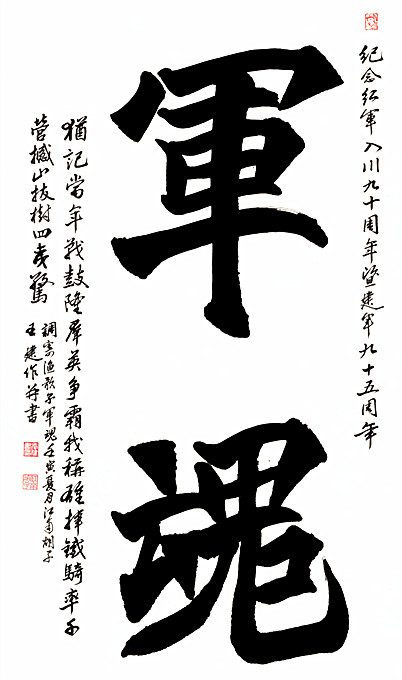 纪念红軍入川九十周年暨建軍九十五周年
軍魂
猶記當年戰鼓隆羣英爭霸我稱雄揮鐵騎率千
營撼山拔樹四夷驚
調寄漁歌子軍魂壬寅夏月江南胡子
王建作并書